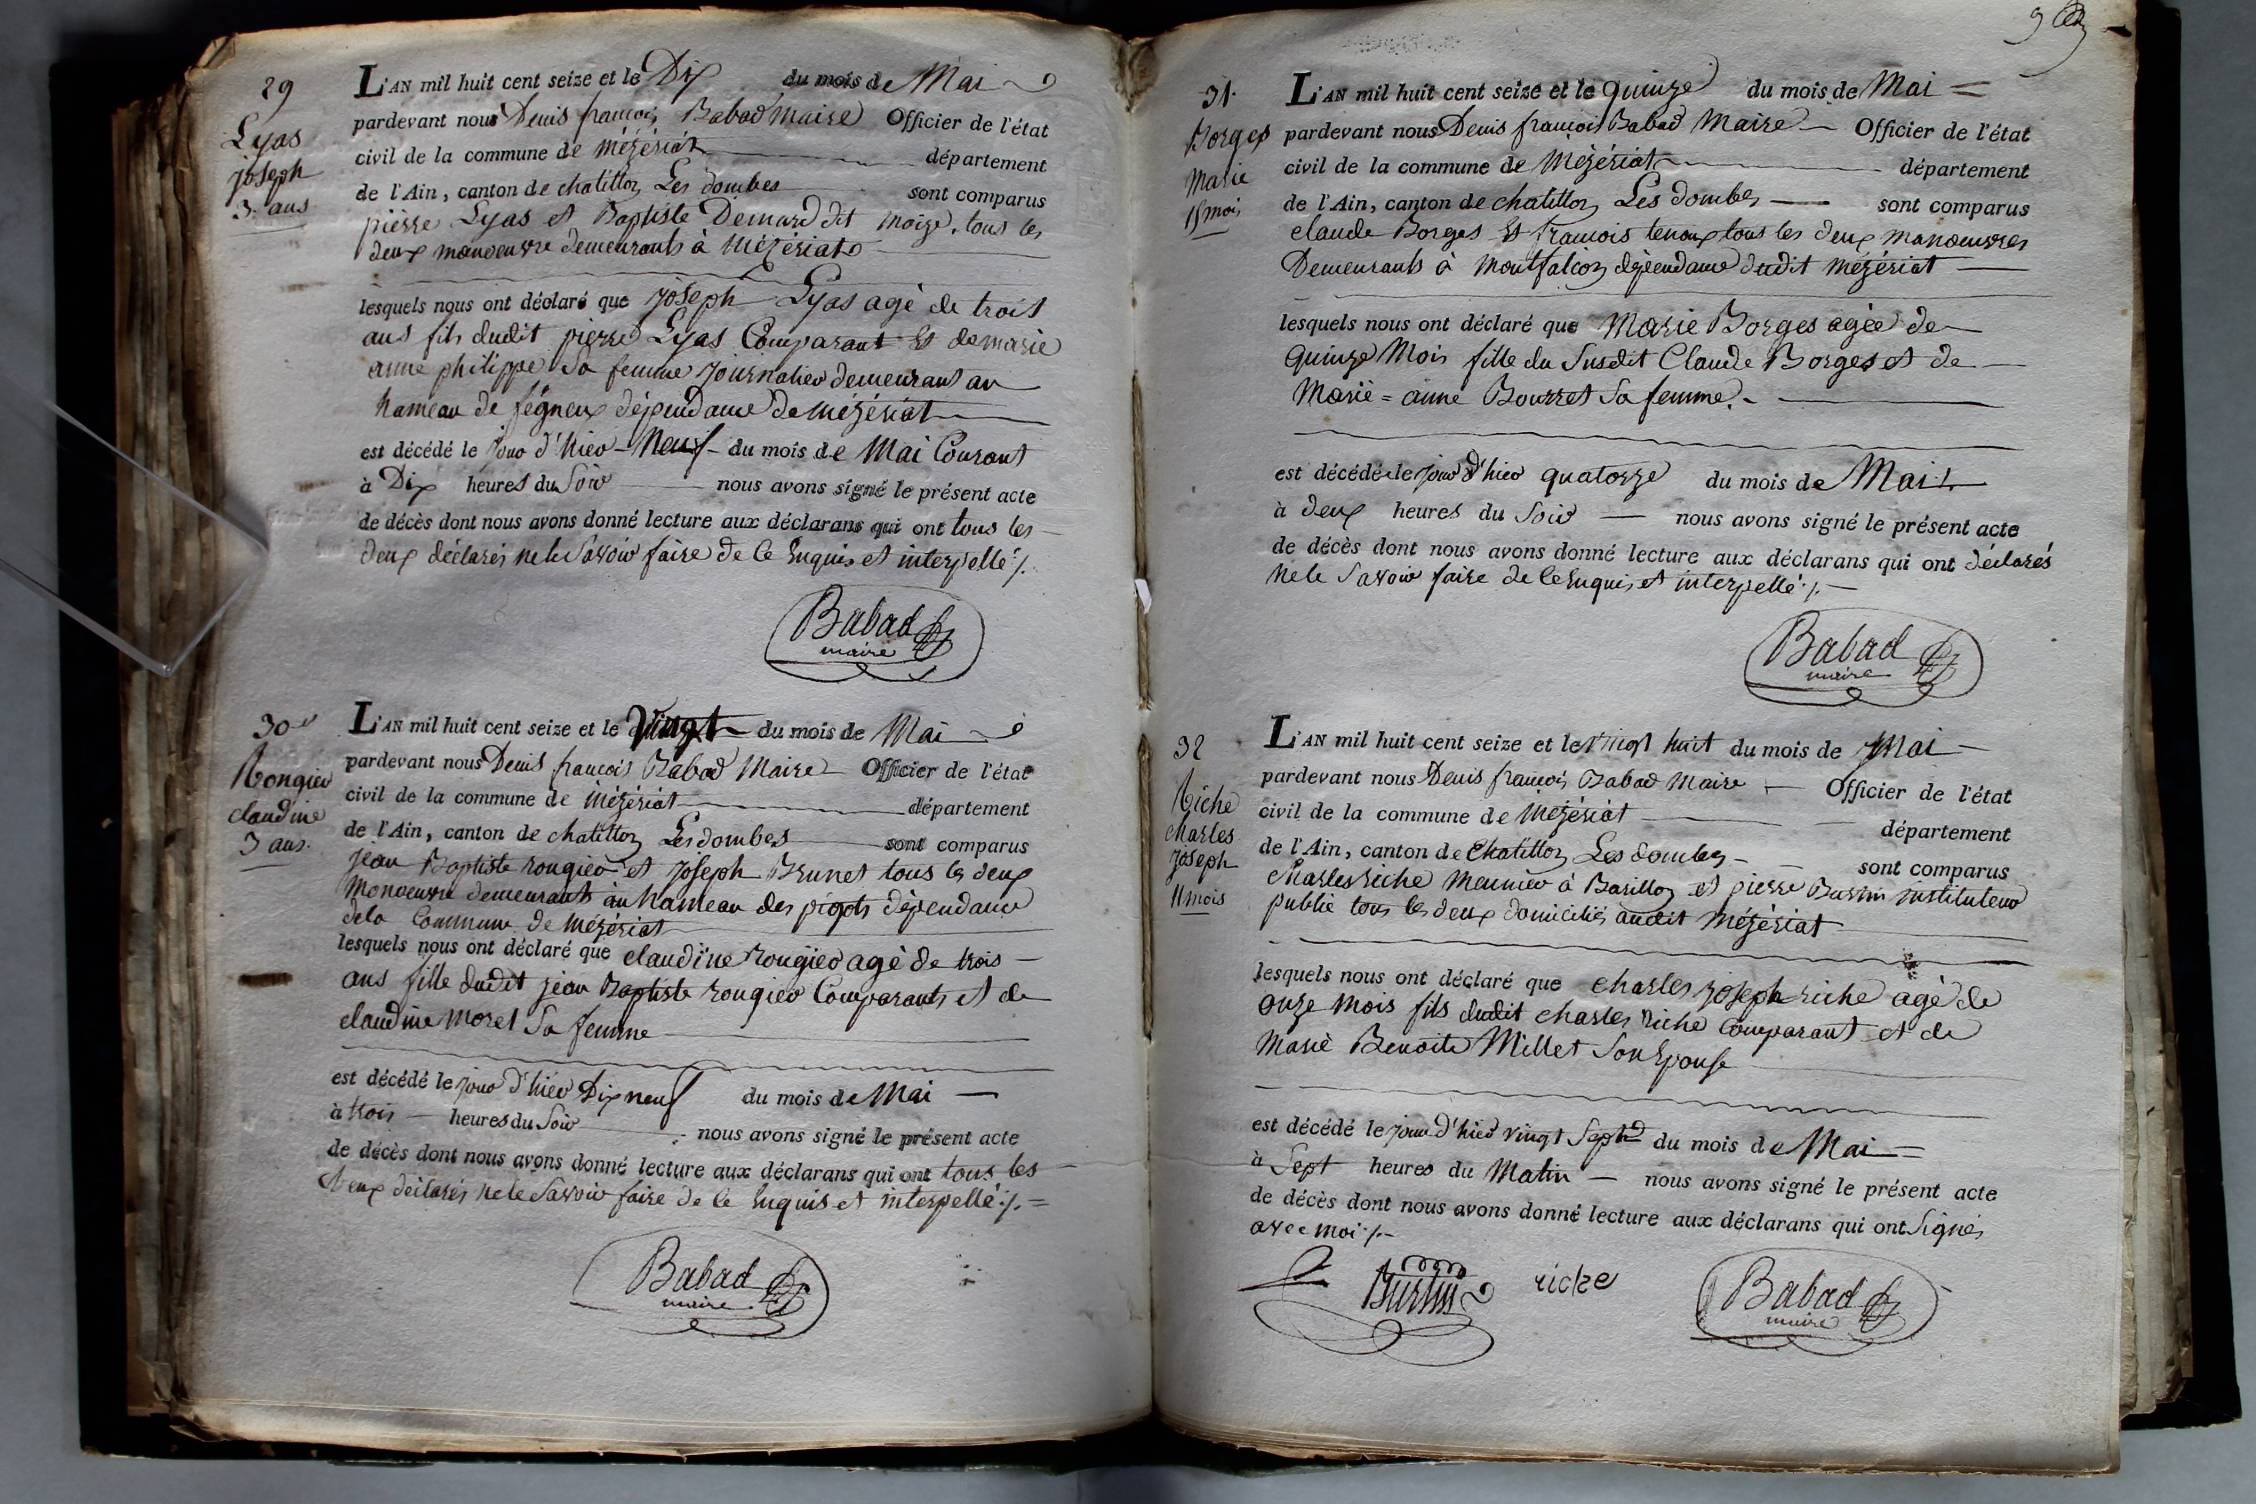 29
Lyas
joseph
3. ans
L'AN mil huit cent seize et le Dix du mois de Mai
pardevant nous Denis françois Babad Maire Officier de l'état
civil de la commune de Mézériat département
de l'Ain, canton de chatillon Les dombes sont comparus
pierre Lyas et Baptiste Demard dit moize, tous les
deux manoeuvre demeurants à Mézériat
lesquels nous ont déclaré que joseph Lyas agé de trois
ans fils dudit pierre Lyas Comparant Et de marie
anne philippe Sa femme journalier demeurant au
hameau de fégneux dépendance de Mézériat
est décédé le jour d'hier Neuf du mois de Mai Courant
à Dix heures du Soir nous avons signé le présent acte
de décès dont nous avons donné lecture aux déclarans qui ont tous les
deux déclarés ne le Savoir faire de ce Enquis et interpellé ./.
Babad
maire
30
Rongier
claudine
3 ans.
L'AN mil huit cent seize et le Vingt du mois de Mai
pardevant nous Denis françois Babad Maire Officier de l'état
civil de la commune de Mézériat département
de l'Ain, canton de chatillon Les dombes sont comparus
jean Baptiste rongier et joseph Brunet tous les deux
Manoeuvre demeurants au hameau des pigots dépendance
dela Commune de Mézériat
lesquels nous ont déclaré que claudine rongier agé de trois
ans fille dudit jean Baptiste rongier Comparants et de
claudine moret Sa femme
est décédé le jour d'hier Dix neuf du mois de Mai
à trois heures du Soir nous avons signé le présent acte
de décès dont nous avons donné lecture aux déclarans qui ont tous les
deux déclarés ne le Savoir faire de ce Enquis et interpellé ./.
Babad
maire
31.
Borges
Marie
15 mois
L'AN mil huit cent seize et le quinze du mois de Mai
pardevant nous Denis françois Babad Maire Officier de l'état
civil de la commune de Mézériat département
de l'Ain, canton de chatillon Les dombes sont comparus
claude Borges Et francois tenoux tous les deux manoeuvres
Demeurants à Montfalcon dépendance dudit Mézériat
lesquels nous ont déclaré que Marie Borges agée de
Quinze Mois fille du Susdit Claude Borges et de
Marie = anne Bourret Sa femme.
est décédé le jour d'hier quatorze du mois de Mai
à deux heures du Soir nous avons signé le présent acte
de décès dont nous avons donné lecture aux déclarans qui ont déclarés
ne le Savoir faire de ce Enquis et interpellé ./.
Babad
maire
32
Riche
charles
joseph
11 mois
L'AN mil huit cent seize et le vingt huit du mois de Mai
pardevant nous Denis françois Babad Maire Officier de l'état
civil de la commune de Mézériat département
de l'Ain, canton de Chatillon Les dombes sont comparus
Charles riche Meunier à Barillon et pierre Burtin instituteur
public tous les deux domiciliés audit Mézériat
lesquels nous ont déclaré que charles joseph riche agé de
onze Mois fils dudit charles riche Comparant et de
Marie Benoite Millet Son Epouse
est décédé le jour d'hier vingt Sept du mois de Mai
à Sept heures du Matin nous avons signé le présent acte
de décès dont nous avons donné lecture aux déclarans qui ont Signés
avec moi ./.
Burtin riche Babad
maire